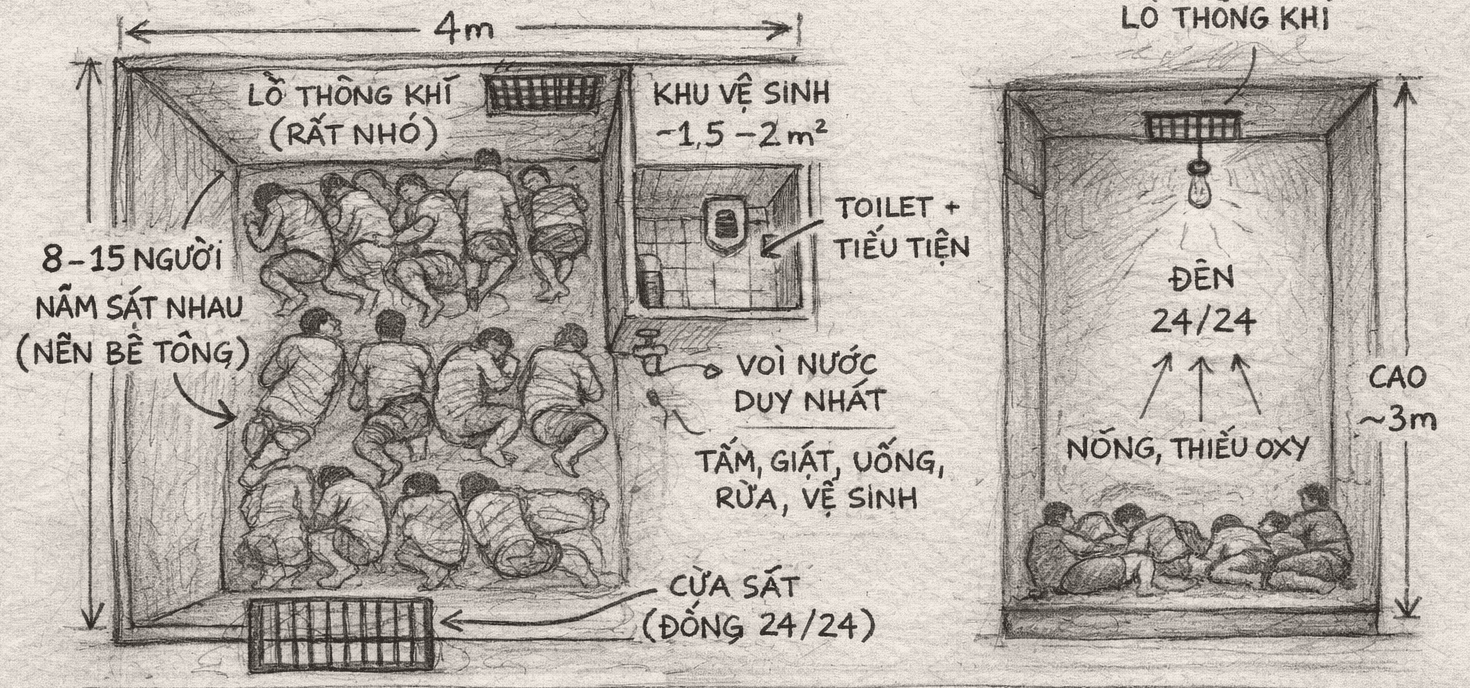 4m
LỖ THÔNG KHÍ
(RẤT NHỎ)
KHU VỆ SINH
~1,5 – 2 m²
8–15 NGƯỜI
NẰM SÁT NHAU
(NỀN BÊ TÔNG)
TOILET +
TIỂU TIỆN
VOÌ NƯỚC
DUY NHẤT
TẮM, GIẶT, UỐNG,
RỬA, VỆ SINH
CỬA SẮT
(ĐÓNG 24/24)
LỖ THÔNG KHÍ
ĐÈN
24/24
NÓNG, THIẾU OXY
CAO
~3m